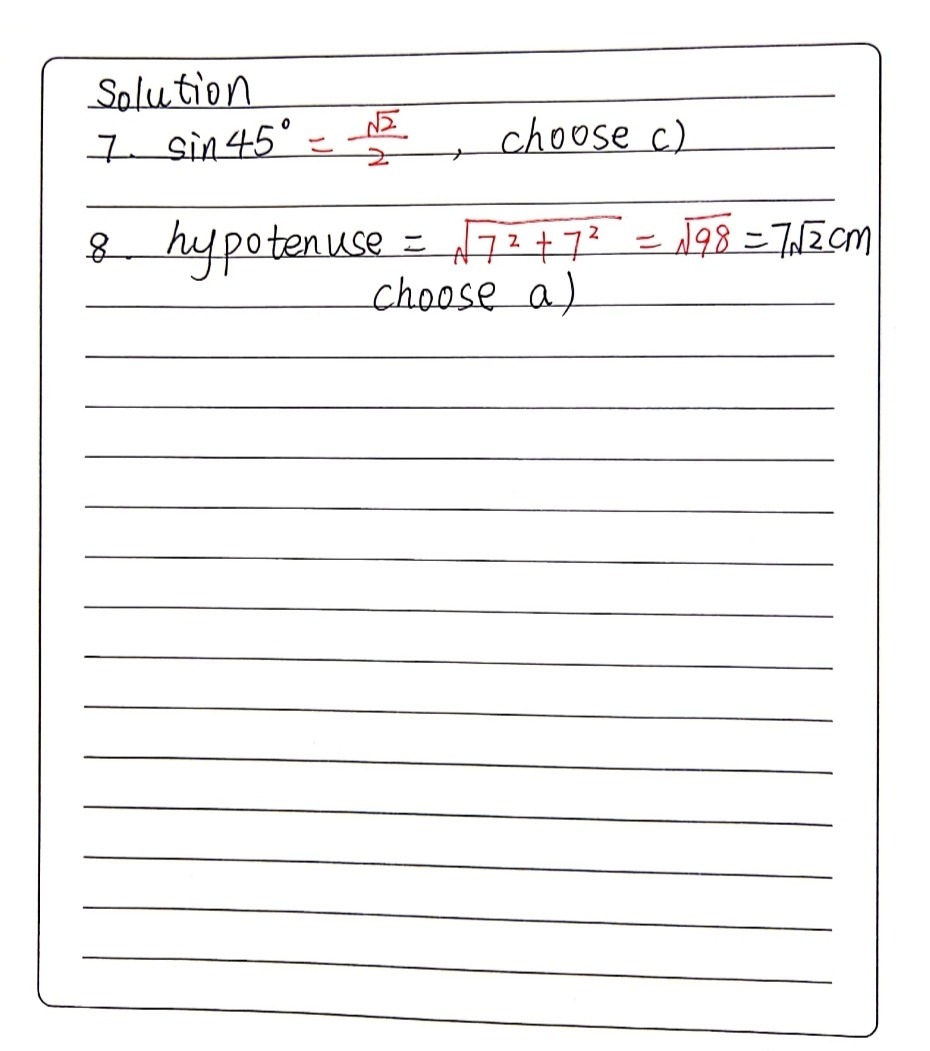 Solution
7. sin 45° = √2/2 , choose c)
8. hypotenuse = √(7² + 7²) = √98 = 7√2 cm
choose a)